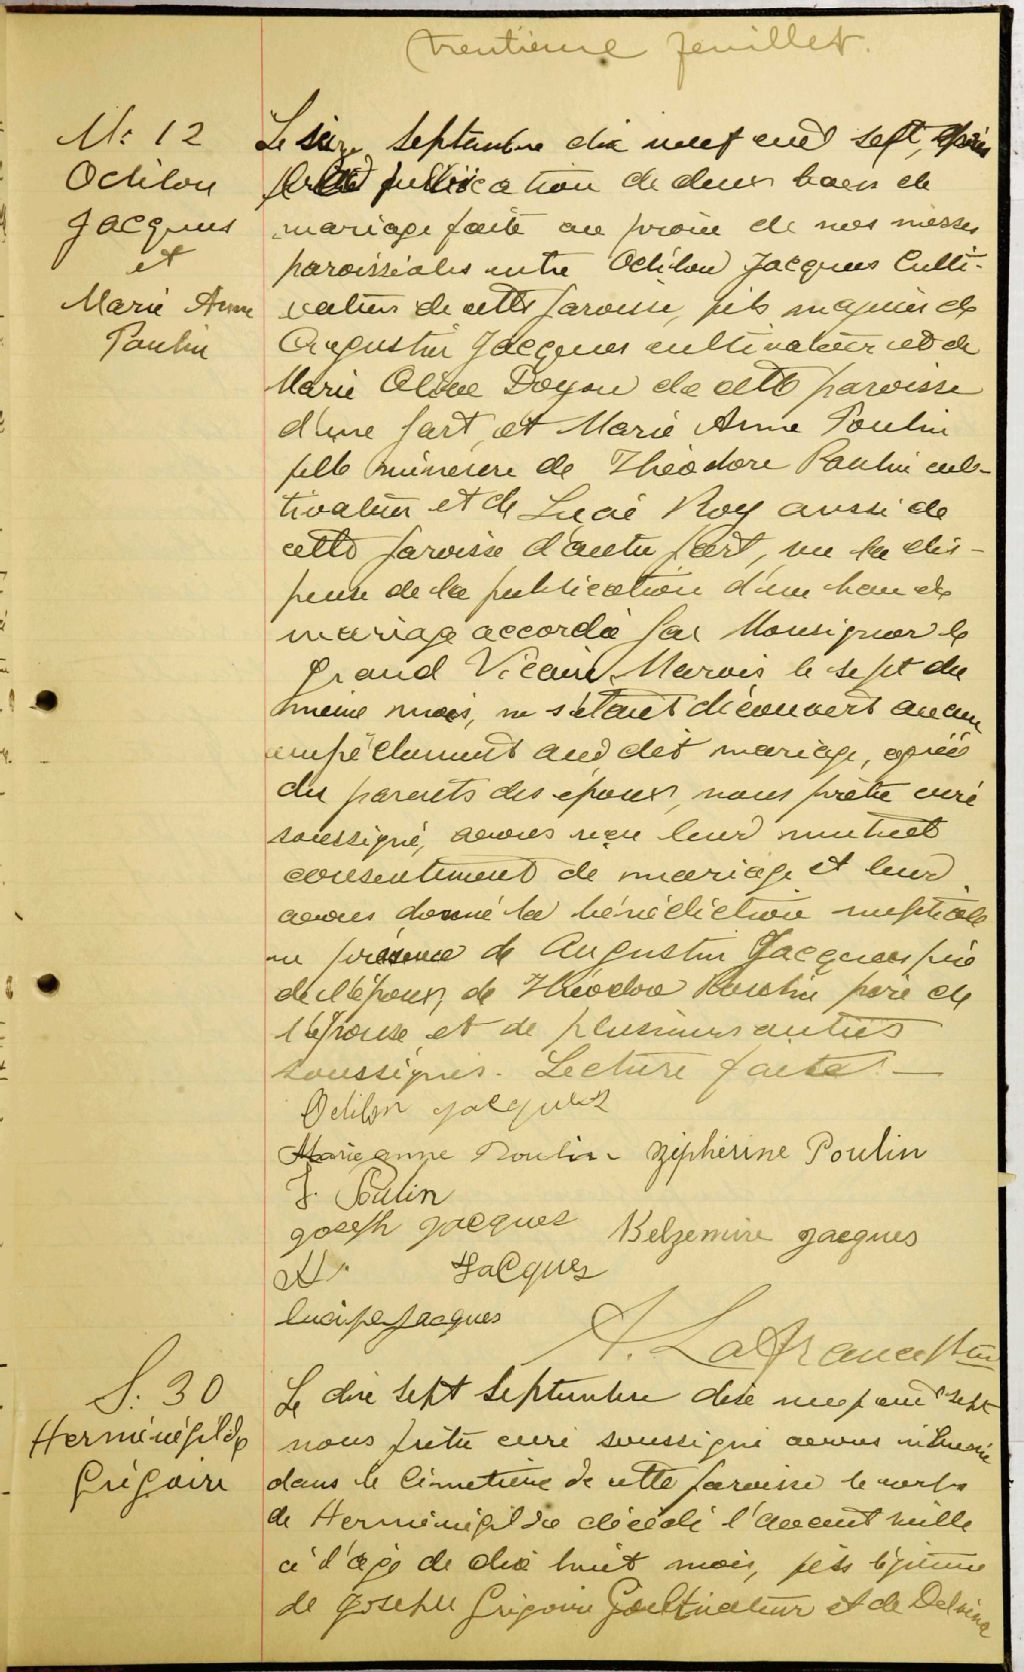 trentième feuillet.
M: 12
Odilon
Jacques
et
Marie Anne
Poulin
Le seize Septembre dix neuf cent sept, après
publication de deux bans de
mariage faite au prône de nos messes
paroissiales entre Odilon Jacques Culti-
vateur de cette paroisse, fils majeur de
Augustin Jacques cultivateur et de
Marie Olive Doyon de cette paroisse
d'une part, et Marie Anne Poulin
fille mineure de Théodore Poulin cul-
tivateur et de Lucie Roy aussi de
cette paroisse d'autre part, vu la dis-
pense de la publication d'un ban de
mariage accordée par Monsignor le
Grand Vicaire Marois le sept du
même mois, ne s'étant découvert aucun
empêchement au dit mariage, agréé
des parents des époux, nous prêtre curé
soussigné, avons reçu leur mutuel
consentement de mariage et leur
avons donné la bénédiction nuptiale
en présence de Augustin Jacques père
de l'époux, de Théodore Poulin père de
l'épouse et de plusieurs autres
soussignés. Lecture faite. —
Odilon Jacques
Marie anne Poulin Ziphérine Poulin
T. Poulin
Joseph Jacques Belzemire Jacques
Jacques
Jacques
A. Lafrance Ptre
S. 30
Herménégilde
Grégoire
Le dix sept Septembre dix neuf cent sept
nous prêtre curé soussigné avons inhumé
dans le Cimetière de cette paroisse le corps
de Herménégilde décédé l'avant veille
à l'âge de dix huit mois, fils légitime
de Joseph Grégoire Cultivateur et de Delvina